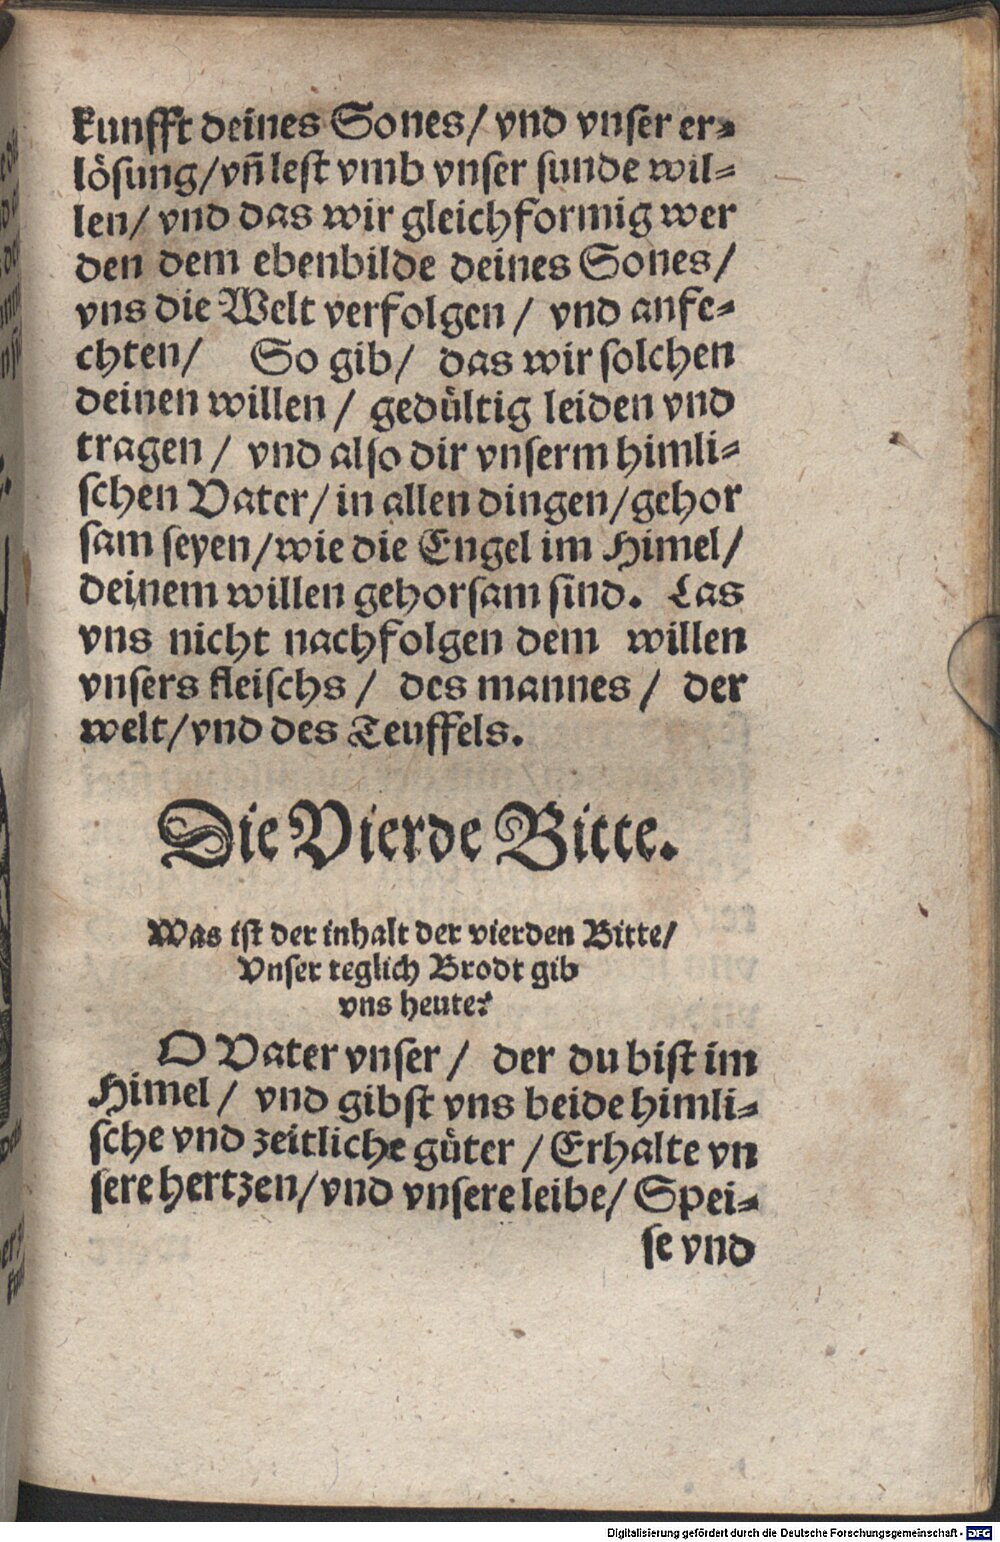 kunfft deines Sones/ vnd vnser er⸗
lösung/vn̄ lest vmb vnser sunde wil⸗
len/ vnd das wir gleichformig wer
den dem ebenbilde deines Sones/
vns die Welt verfolgen / vnd anfe⸗
chten/ So gib/ das wir solchen
deinen willen / gedültig leiden vnd
tragen / vnd also dir vnserm himli⸗
schen Vater/ in allen dingen/gehor
sam seyen/wie die Engel im Himel/
deinem willen gehorsam sind. Las
vns nicht nachfolgen dem willen
vnsers fleischs / des mannes / der
welt/vnd des Teuffels.
Die Vierde Bitte.
Was ist der inhalt der vierden Bitte/
Vnser teglich Brodt gib
vns heute?
O Vater vnser / der du bist im
Himel / vnd gibst vns beide himli⸗
sche vnd zeitliche güter / Erhalte vn
sere hertzen/vnd vnsere leibe/ Spei⸗
se vnd
Digitalisierung gefördert durch die Deutsche Forschungsgemeinschaft - DFG